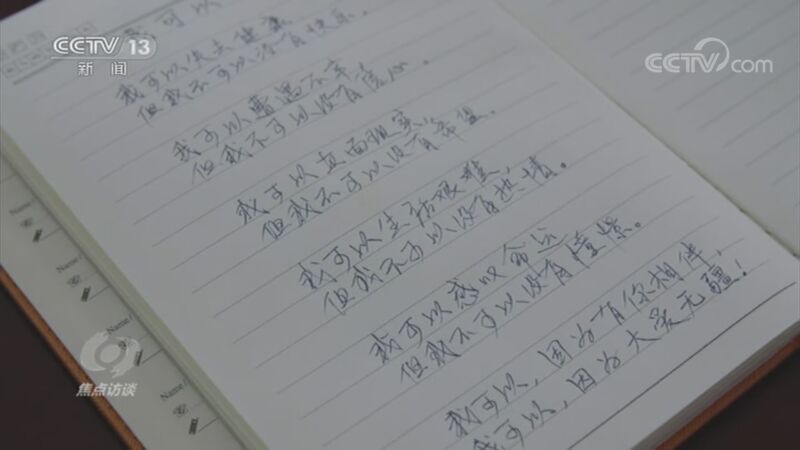 CCTV 13
新闻
CCTV.com
我可以
我可以失去健康
但我不可以没有快乐.
我可以遭遇不幸
但我不可以没有信心.
我可以直面现实,
但我不可以没有希望.
我可以生活艰难,
但我不可以没有热情。
我可以感叹命运
但我不可以没有憧憬。
我可以,因为有你相伴,
我可以,因为大爱无疆!
Name
Name
Name/
Name/
Name/
焦点访谈